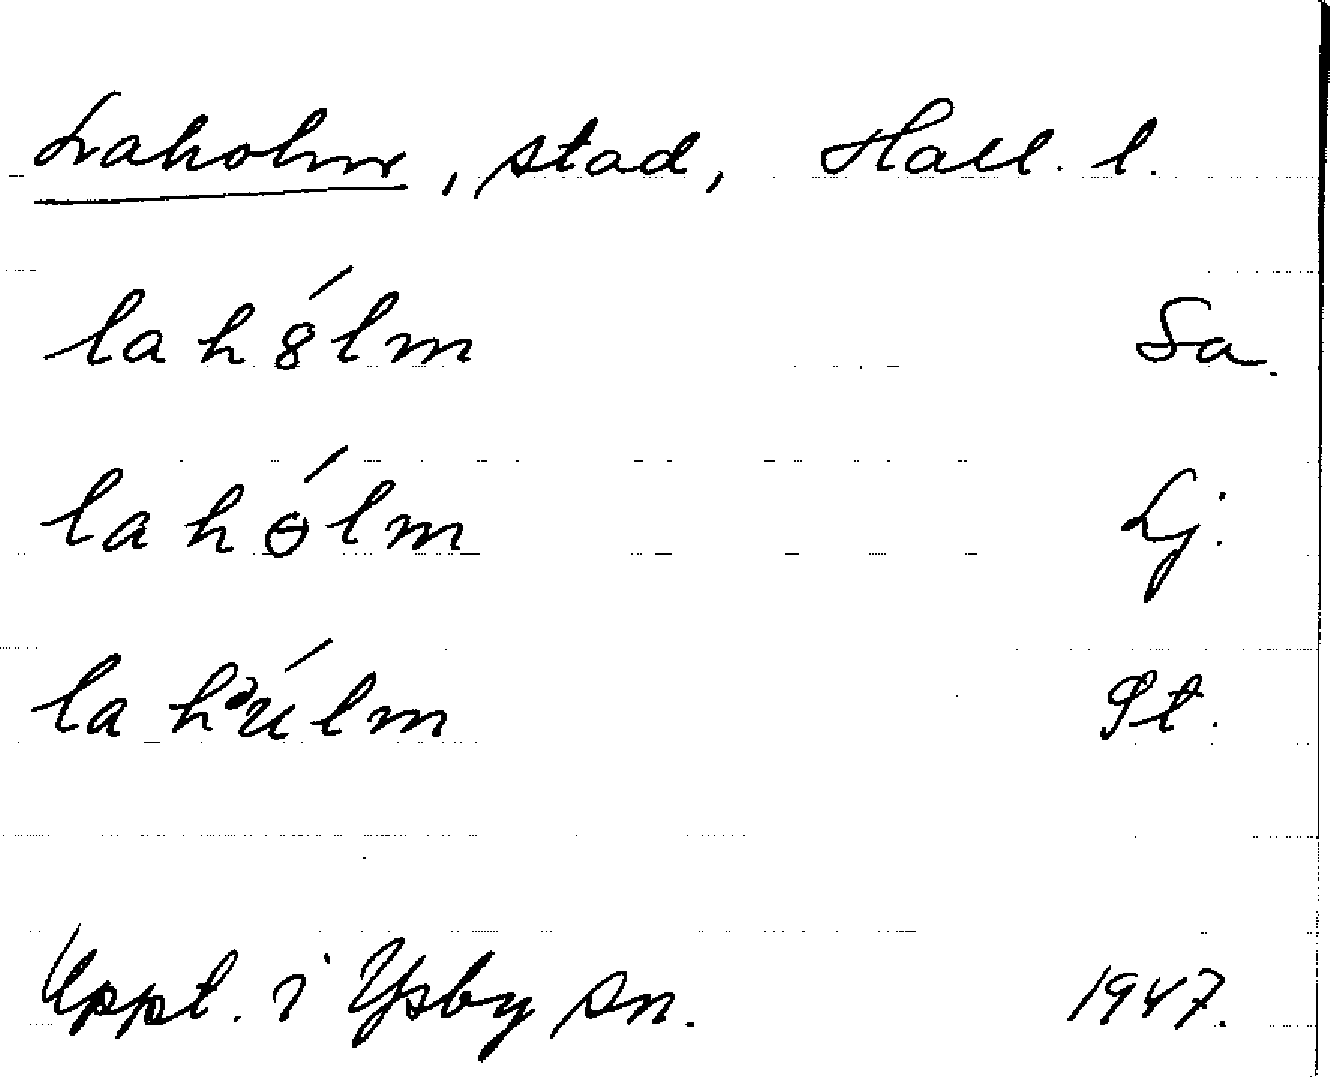 Laholm, stad, Hall. l.
la h8́lm Sa.
la hɵ́lm Lj.
la hᵊúlm St.
Uppt. i Ysby sn. 1947.